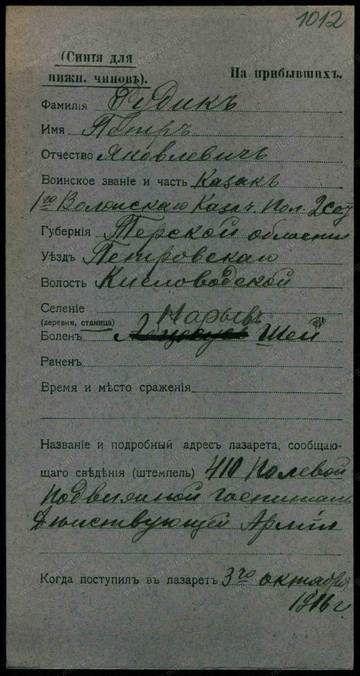 1012
(Синія для
нижн. чиновъ). На прибывшихъ.
Фамилія Рудикъ
Имя Петръ
Отчество Яковлевичъ
Воинское званіе и часть Казакъ
1го Волжскаго Казач. Пол. 2 сот
Губернія Терской области
Уѣздъ Петровскаго
Волость Кисловодской
Селеніе
(деревня, станица) Нарывъ
Боленъ Шеи
Раненъ
Время и мѣсто сраженія
Названіе и подробный адресъ лазарета, сообщаю-
щаго свѣдѣнія (штемпель) 410 Полевой
подвижной госпиталь
Дѣйствующей Арміи
Когда поступилъ въ лазаретъ 3го октября
1916 г